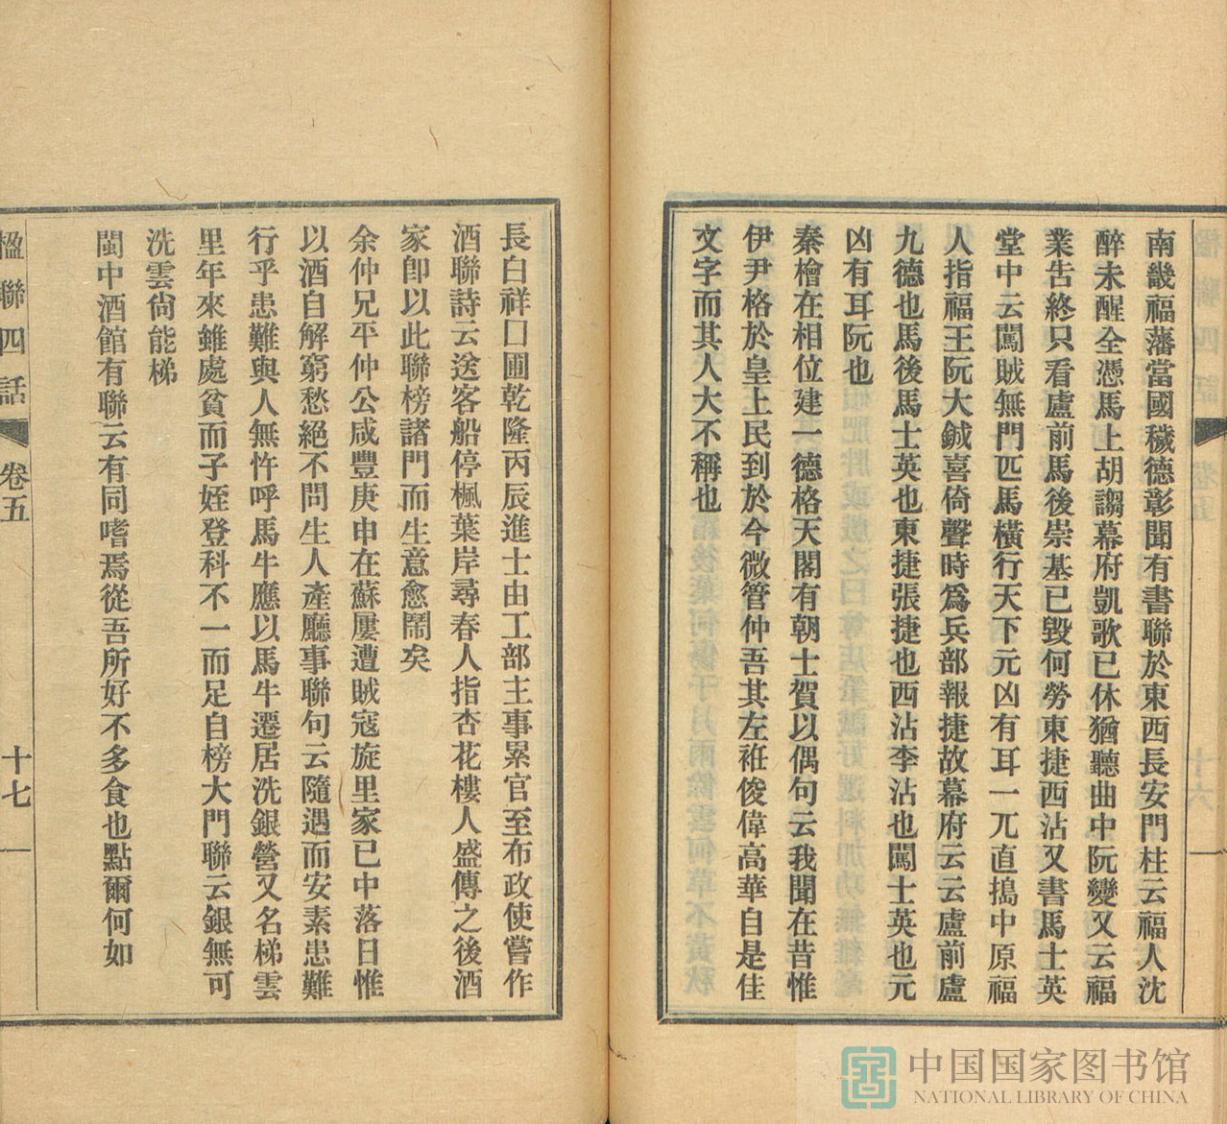 南畿福藩當國穢德彰聞有書聯於東西長安門柱云福人沈
醉未醒全憑馬上胡謅幕府凱歌已休猶聽曲中阮變又云福
業告終只看盧前馬後崇基已毀何勞東捷西沾又書馬士英
堂中云闖賊無門匹馬橫行天下元凶有耳一兀直搗中原福
人指福王阮大鋮喜倚聲時爲兵部報捷故幕府云云盧前盧
九德也馬後馬士英也東捷張捷也西沾李沾也闖士英也元
凶有耳阮也
秦檜在相位建一德格天閣有朝士賀以偶句云我聞在昔惟
伊尹格於皇上民到於今微管仲吾其左袵俊偉高華自是佳
文字而其人大不稱也
長白祥口圃乾隆丙辰進士由工部主事累官至布政使嘗作
酒聯詩云送客船停楓葉岸尋春人指杏花樓人盛傳之後酒
家卽以此聯榜諸門而生意愈鬧矣
余仲兄平仲公咸豐庚申在蘇屢遭賊寇旋里家已中落日惟
以酒自解窮愁絕不問生人產廳事聯句云隨遇而安素患難
行乎患難與人無忤呼馬牛應以馬牛遷居洗銀營又名梯雲
里年來雖處貧而子姪登科不一而足自榜大門聯云銀無可
洗雲尙能梯
閩中酒館有聯云有同嗜焉從吾所好不多食也點爾何如
楹聯四話 卷五 十七
中国国家图书馆
NATIONAL LIBRARY OF CHINA